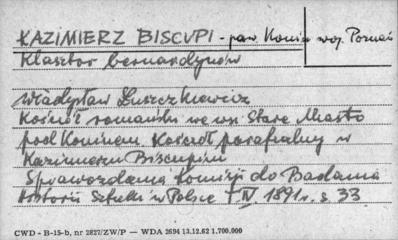 KAZIMIERZ BISCUPI - pow. Konin woj. Poznań
Klasztor bernardynów
Władysław Łuszczkiewicz
Kościół romański we wsi Stare Miasto
pod Koninem. Kościół parafialny w
Kazimierzu Biscupim
Sprawozdania Komisji do Badania
Historii Sztuki w Polsce T IV. 1891 r. s. 33
CWD - B-15-b, nr 2827/ZW/P — WDA 2694 13.12.62 1.700.000